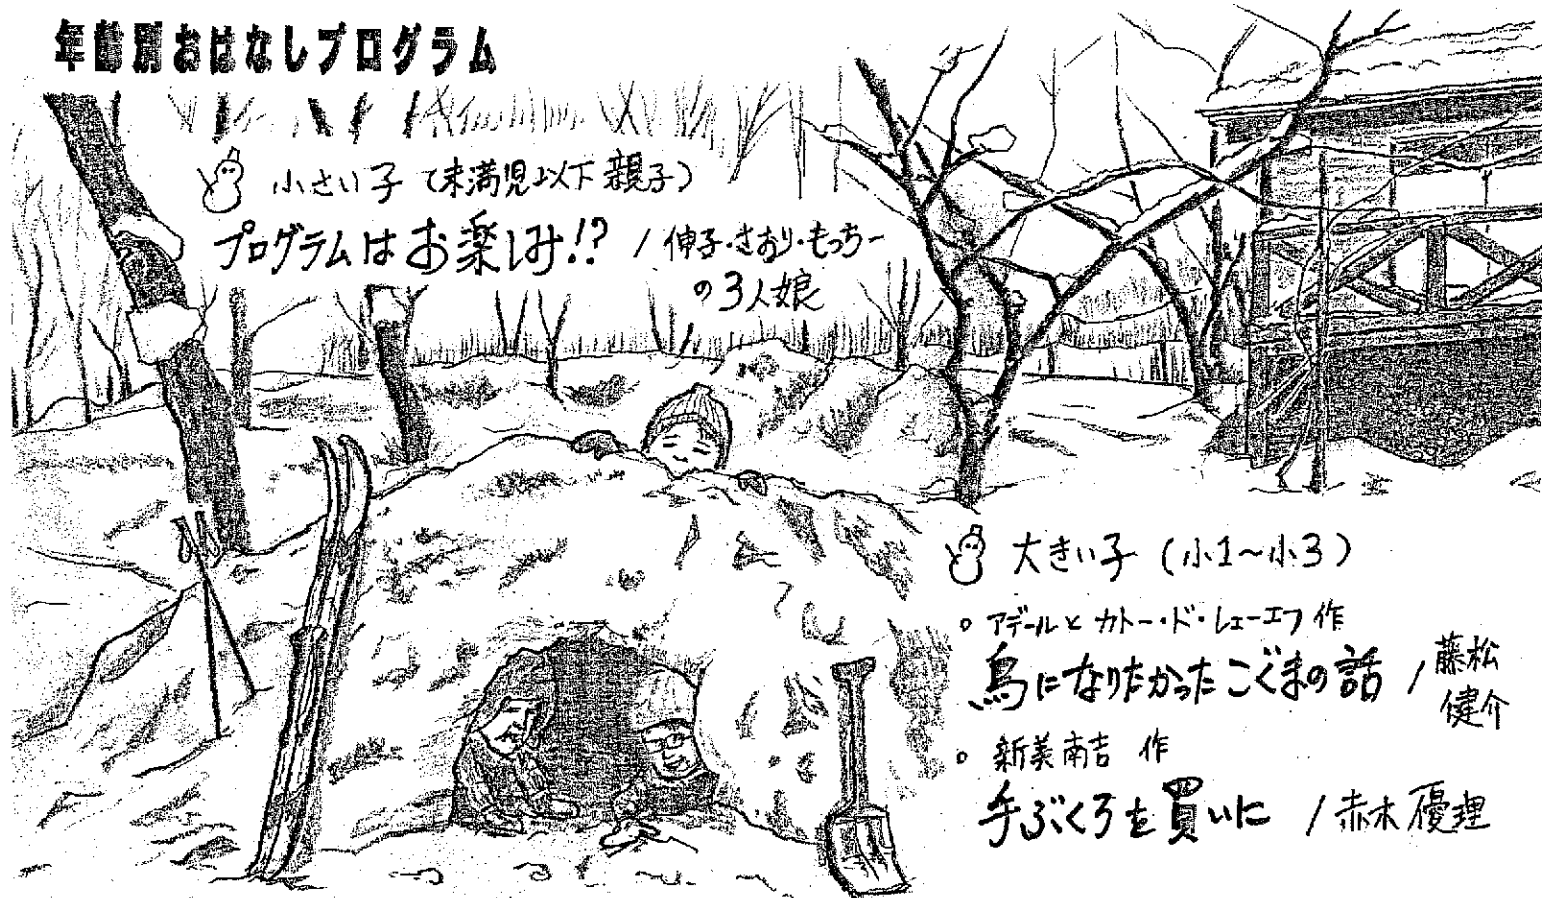 年齢別おはなしプログラム
小さい子(未満児以下親子)
プログラムはお楽しみ!? / 伸子・さおり・もっちー
の3人娘
大きい子(小1〜小3)
○ アデールとカトー・ド・レェーエフ 作
鳥になりたかったこぐまの話 / 藤松
健介
○ 新美南吉 作
手ぶくろを買いに / 赤木優理